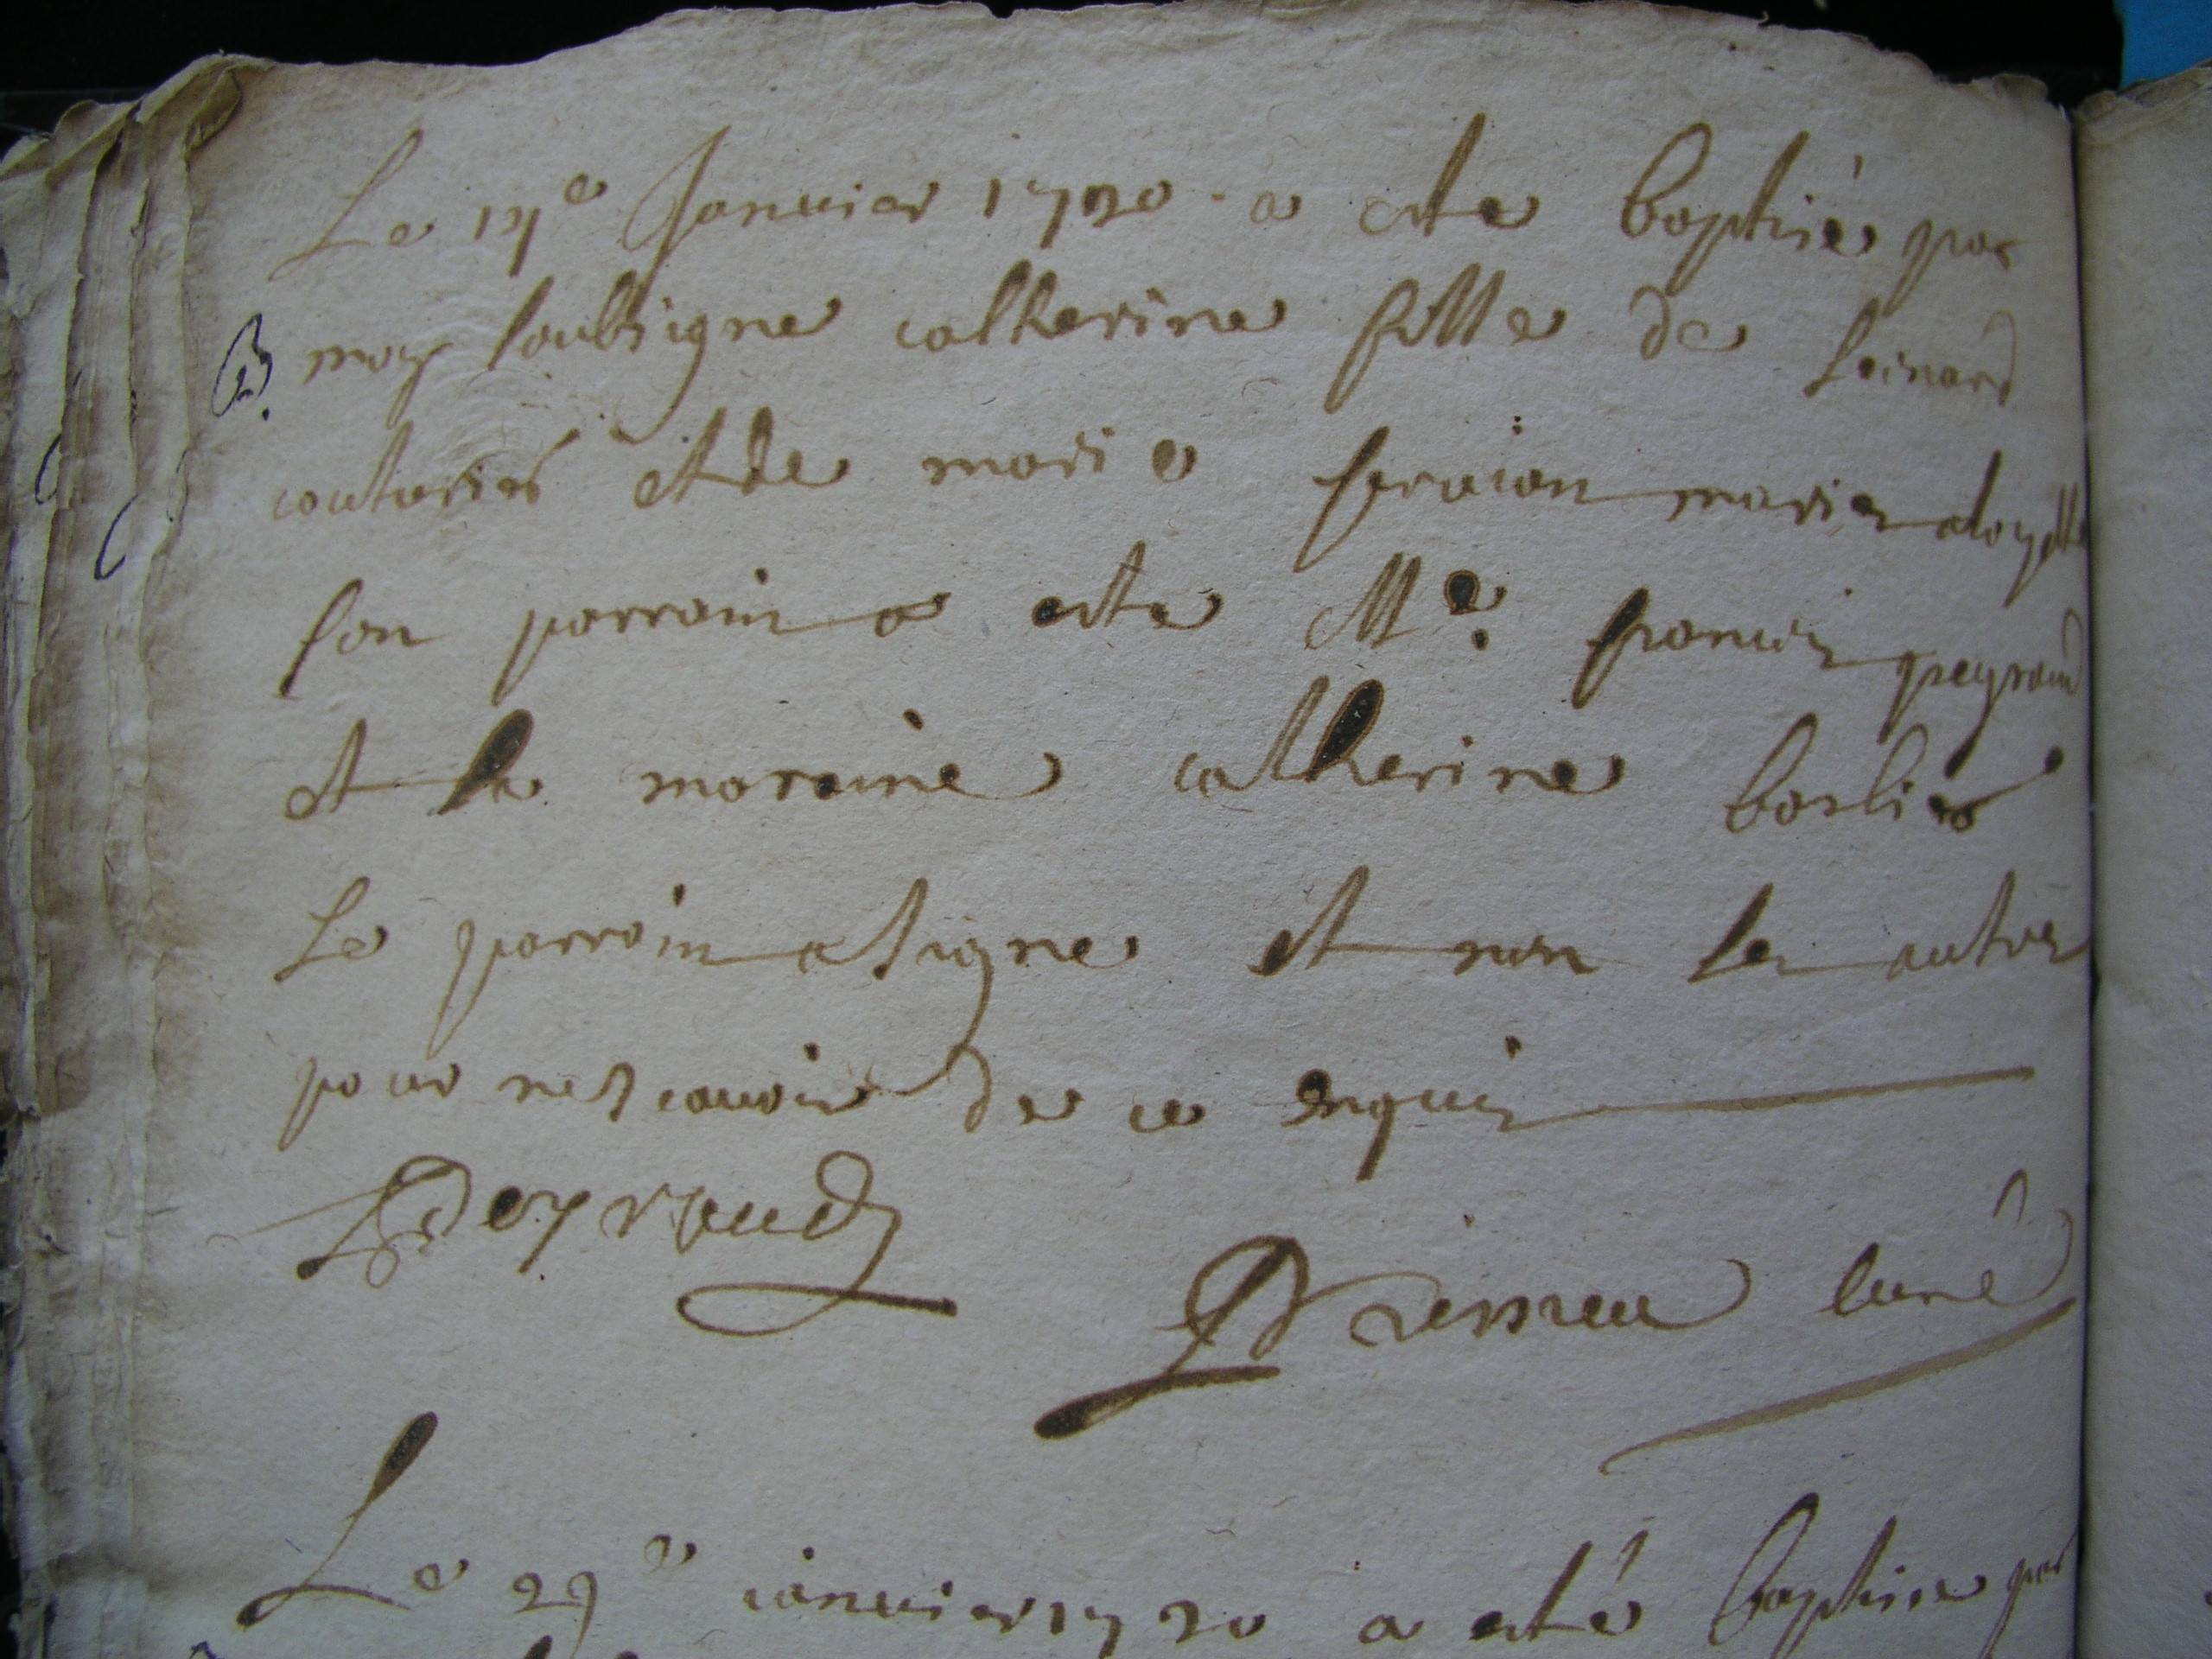 Le 17e Januier 1730 a este baptise par
B. moy soubsigne catherine fille de Leinard
couturier et de marie mariez
son parrain a este Me. peyraud
et la maraine catherine barlier
Le parrain a signe et non les autres
pour ne scavoir de ce enquis
Peyraud
curé
Le 29e ianuier 1730 a esté baptise par